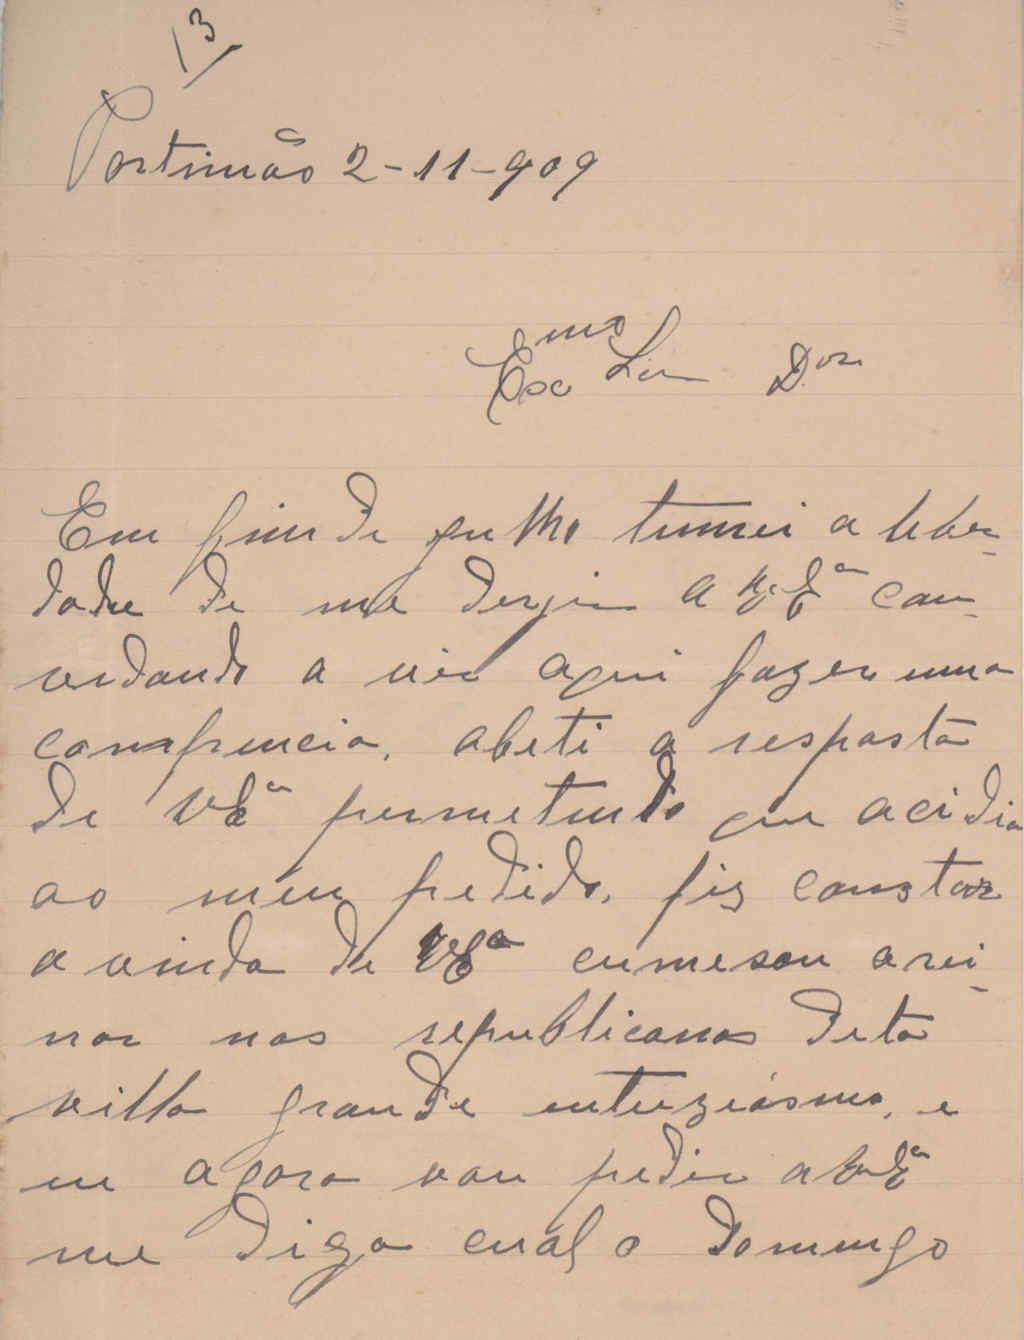 13
Portimão 2-11-909
Exc^mo Snr D.^or
Em fim de julho tumei a liber-
dade de me derjir a V. E^a con-
vidando a vir aqui fazer uma
confrencia, abeti a resposta
de V E^a permetindo que acidia
ao meu pedido, fiz constar
a vinda de V E^a cumesou a rei-
nar nos republicanos deta
villa grande intuziásmo, e
eu agora vou pedir a V E^a
me diga cual o Domingo